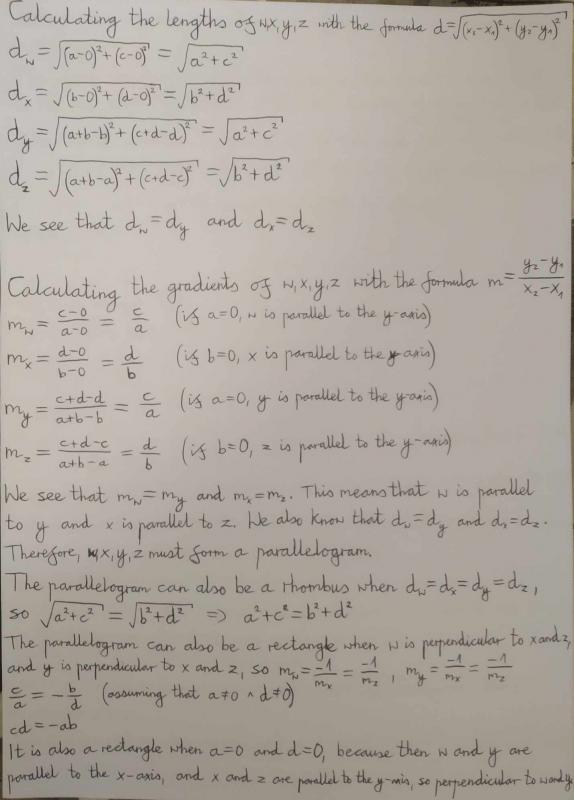 Calculating the lengths of w,x,y,z with the formula d=√((x₂-x₁)²+(y₂-y₁)²)
d_w = √((a-0)²+(c-0)²) = √(a²+c²)
d_x = √((b-0)²+(d-0)²) = √(b²+d²)
d_y = √((a+b-b)²+(c+d-d)²) = √(a²+c²)
d_z = √((a+b-a)²+(c+d-c)²) = √(b²+d²)
We see that d_w = d_y and d_x = d_z
Calculating the gradients of w,x,y,z with the formula m = (y₂-y₁)/(x₂-x₁)
m_w = (c-0)/(a-0) = c/a (if a=0, w is parallel to the y-axis)
m_x = (d-0)/(b-0) = d/b (if b=0, x is parallel to the y-axis)
m_y = (c+d-d)/(a+b-b) = c/a (if a=0, y is parallel to the y-axis)
m_z = (c+d-c)/(a+b-a) = d/b (if b=0, z is parallel to the y-axis)
We see that m_w = m_y and m_x = m_z. This means that w is parallel
to y and x is parallel to z. We also know that d_w = d_y and d_x = d_z.
Therefore, w,x,y,z must form a parallelogram.
The parallelogram can also be a rhombus when d_w = d_x = d_y = d_z,
so √(a²+c²) = √(b²+d²) => a²+c² = b²+d²
The parallelogram can also be a rectangle when w is perpendicular to x and z,
and y is perpendicular to x and z, so m_w = -1/m_x = -1/m_z, m_y = -1/m_x = -1/m_z
c/a = -b/d (assuming that a≠0 ∧ d≠0)
cd = -ab
It is also a rectangle when a=0 and d=0, because then w and y are
parallel to the x-axis, and x and z are parallel to the y-axis, so perpendicular to w and y.